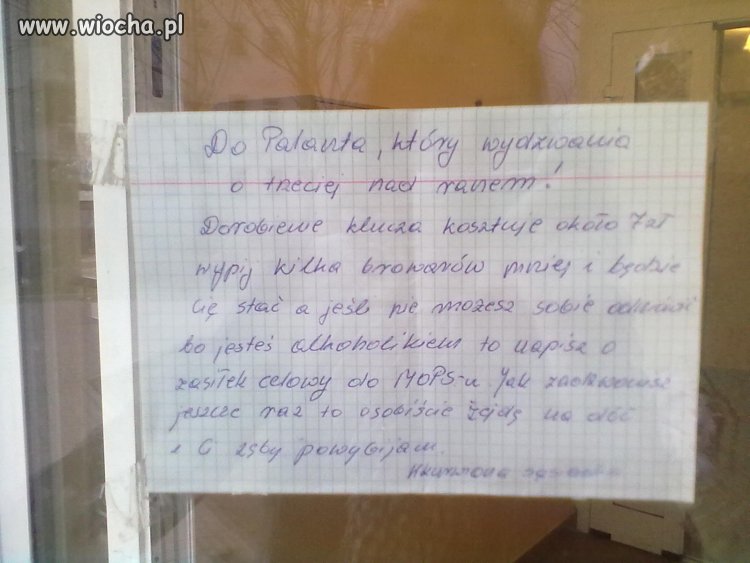 www.wiocha.pl
Do Palanta, który wydzwania
o trzeciej nad ranem!
Dorobienie klucza kosztuje około 7 zł
wypij kilka browarów mniej i będzie
Cię stać a jeśli nie możesz sobie odmówić
bo jesteś alkoholikiem to napisz o
zasiłek celowy do MOPS-u. Jak zadzwonisz
jeszcze raz to osobiście zejdę na dół
i Ci zęby powybijam.
Wkurwiona sąsiadka